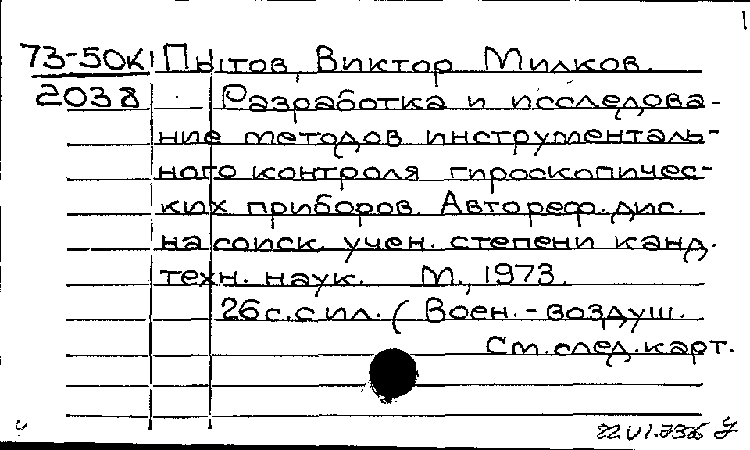 73-50К Пытов, Виктор Милков.
2038 Разработка и исследова-
ние методов инструменталь-
ного контроля гироскопичес-
ких приборов. Автореф. дис.
на соиск. учен. степени канд.
техн. наук. М., 1973.
26 с. с ил. (Воен.-воздуш.
См. след. карт.